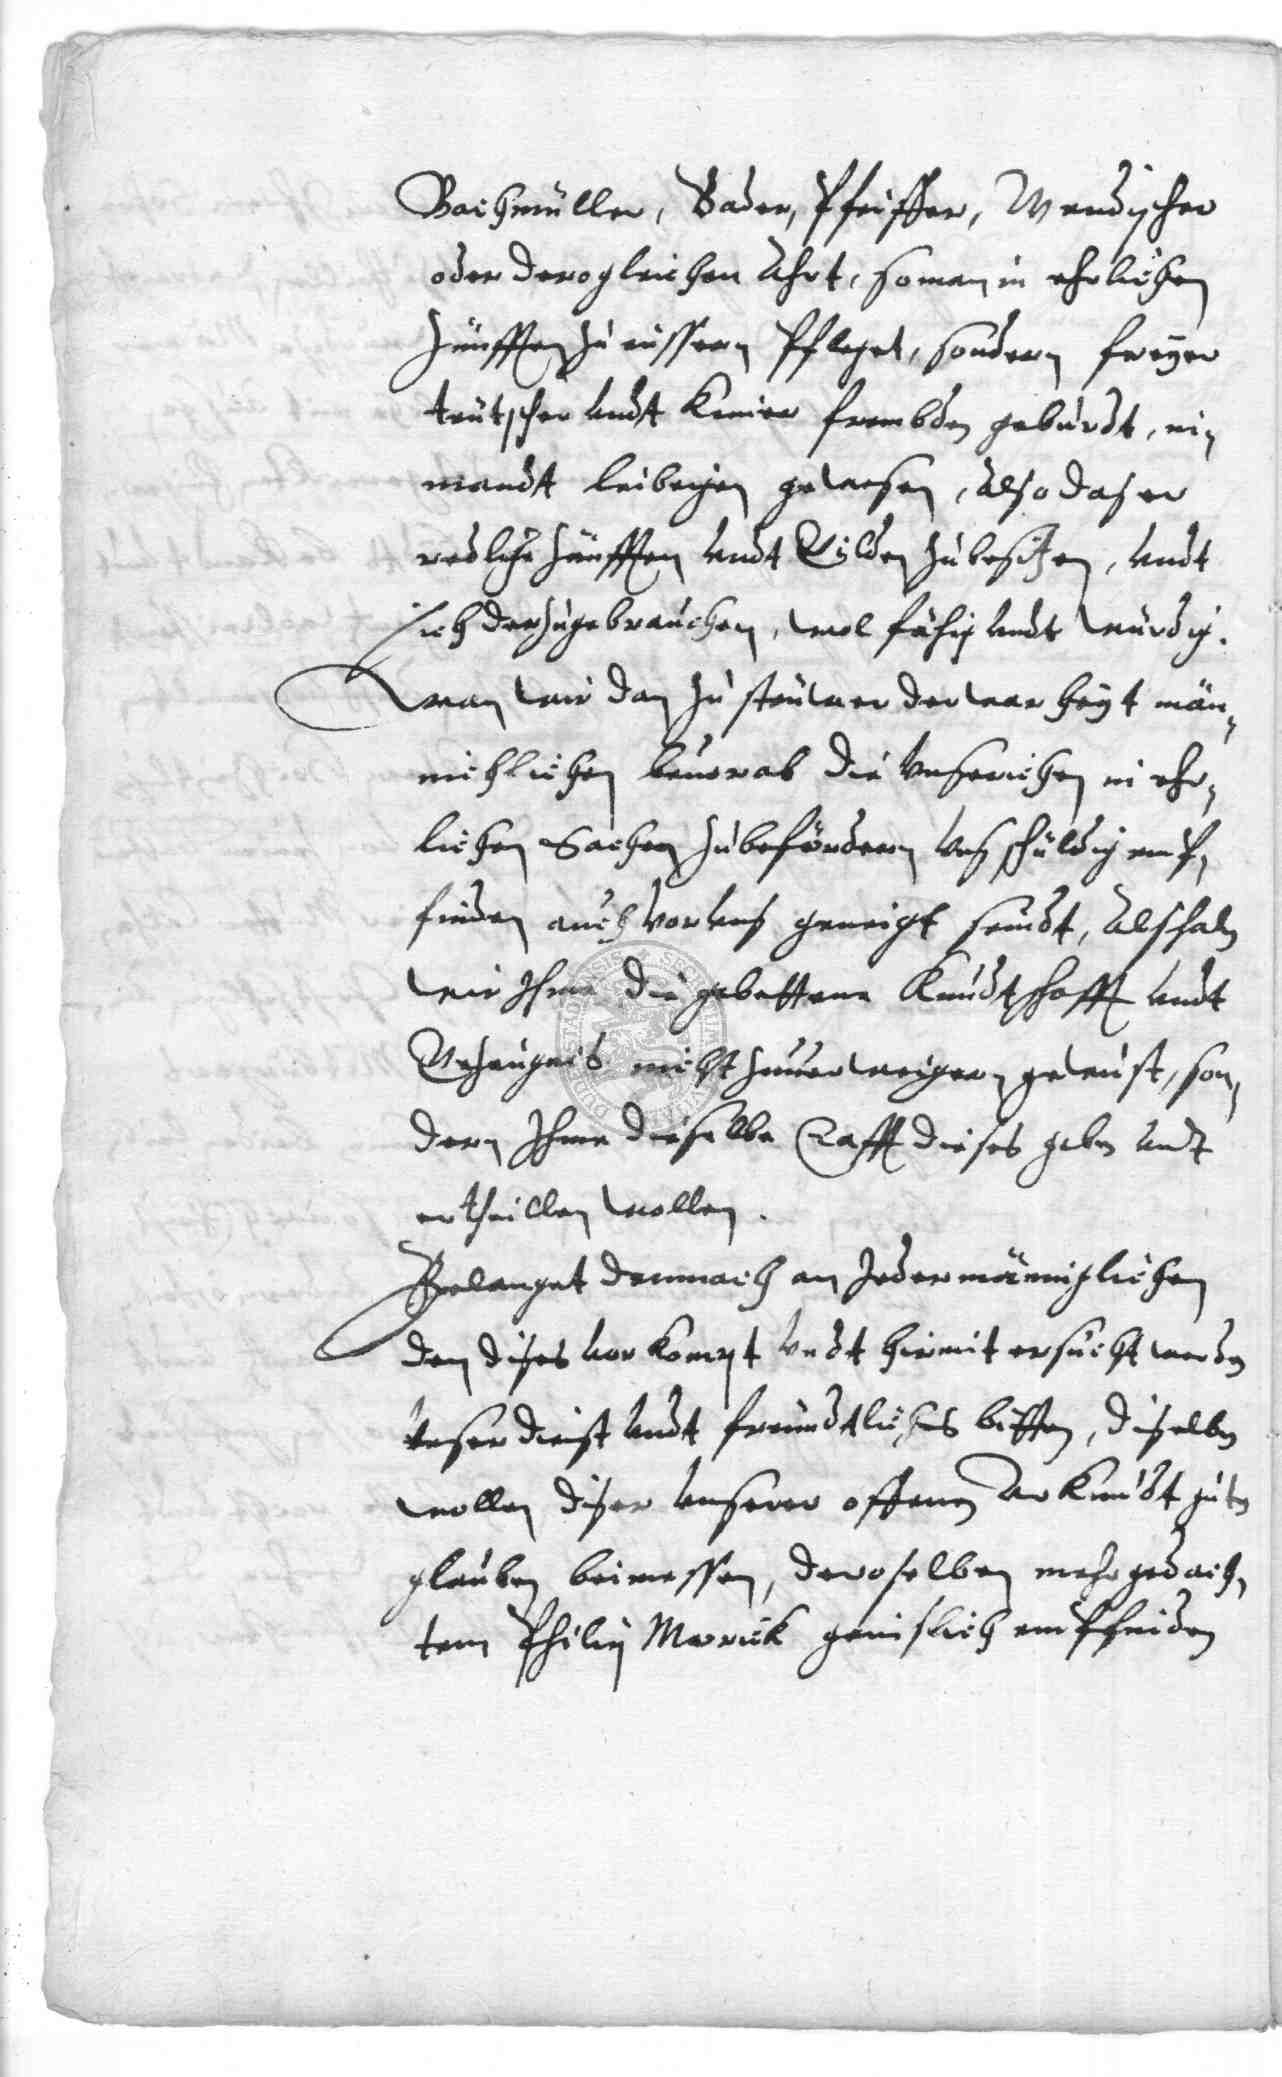 Bachmüller, Bader, Pfeiffer, Wendischer
oder derogleichen Ahrt, so man in ehrlichen
Zünfften zu eussern Pfleget, sondern freyer
teütscher undt Keiner frembden geburdt, nie„
mandt leibeigen gewesen, also daß er
redliche Zünfften undt Gilden zubesitzen, undt
sich derzugebrauchen, wol fähig undt würdig.
Wan wir dan zu steüwer der warheyt män„
nichlichen beuorab die Unserichen in ehr„
lichen Sachen zubefördern Uns schüldig emp„
finden auch vor uns geneigt seindt, Alß haben
wir Ihme die gebettene Kundtschafft undt
Gezeugnis nicht zuuerweigern gewust, son„
dern Ihme dieselbe Crafft dieses geben undt
ertheillen wollen.
Gelanget demnach an Jedermänniglichen
den dises vorkompt undt hirmit ersucht werden
Unser dienst undt freundtliches bitten, diselben
wollen diser unserer offenen Urkundt guten
glauben beimessen, deroselben mehrgedach„
tem Philip Merrick genislich empfinden